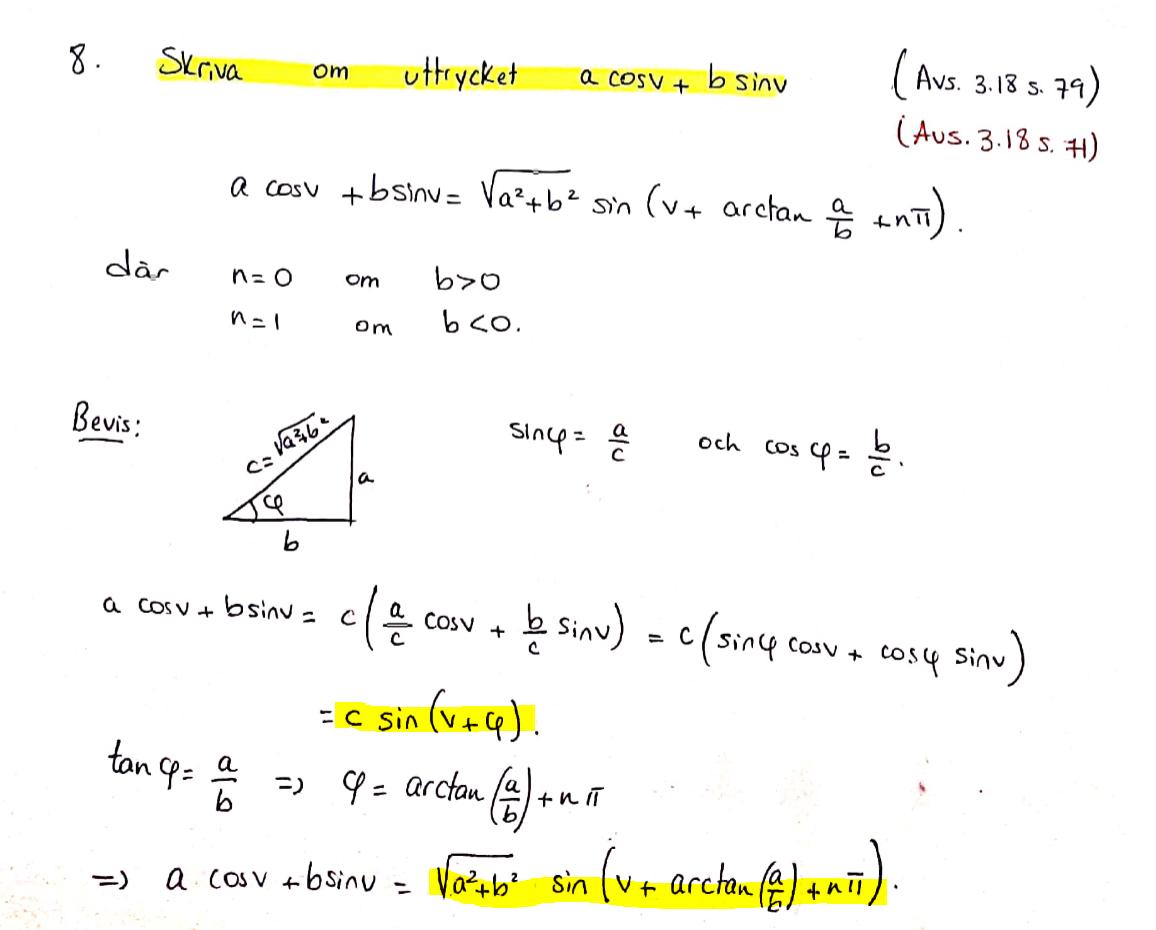 8. Skriva om uttrycket a cosv + b sinv (Avs. 3.18 s. 79)
(Avs. 3.18 s. 71)
a cosv + bsinv = √a²+b² sin (v + arctan a/b + nπ).
där n=0 om b>0
n=1 om b<0.
Bevis: c=√a²+b² φ a b sinφ = a/c och cos φ = b/c.
a cosv + bsinv = c(a/c cosv + b/c sinv) = c(sinφ cosv + cosφ sinv)
= c sin (v+φ).
tan φ = a/b => φ = arctan (a/b) + n π
=> a cosv + bsinv = √a²+b² sin (v + arctan(a/b) + nπ).